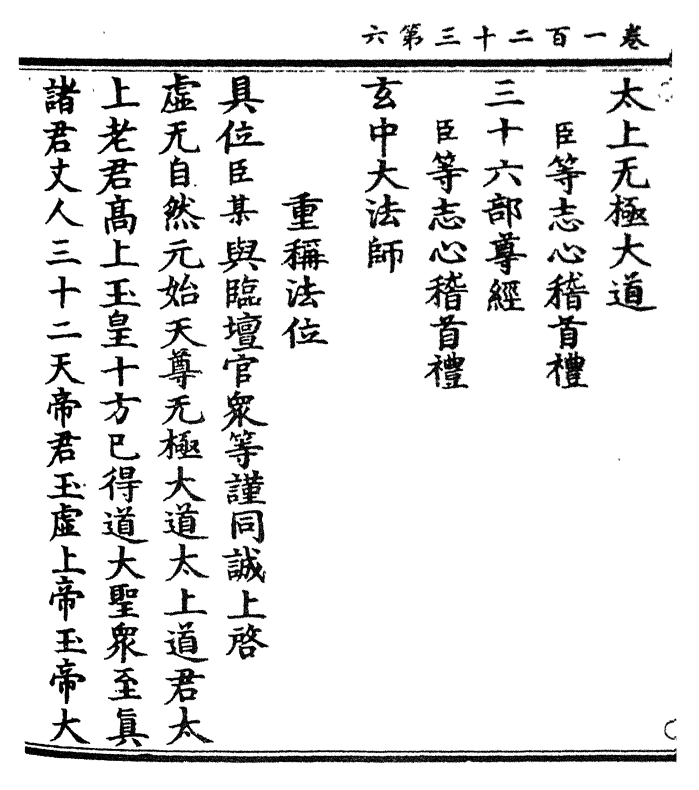 卷一百二十三第六
太上无極大道
臣等志心稽首禮
三十六部尊經
臣等志心稽首禮
玄中大法師
重稱法位
具位臣某與臨壇官衆等謹同誠上啓
虛无自然元始天尊无極大道太上道君太
上老君高上玉皇十方已得道大聖衆至眞
諸君丈人三十二天帝君玉虛上帝玉帝大